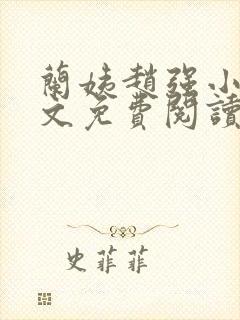 蘭姨趙强小
文免費閱讀
史菲菲